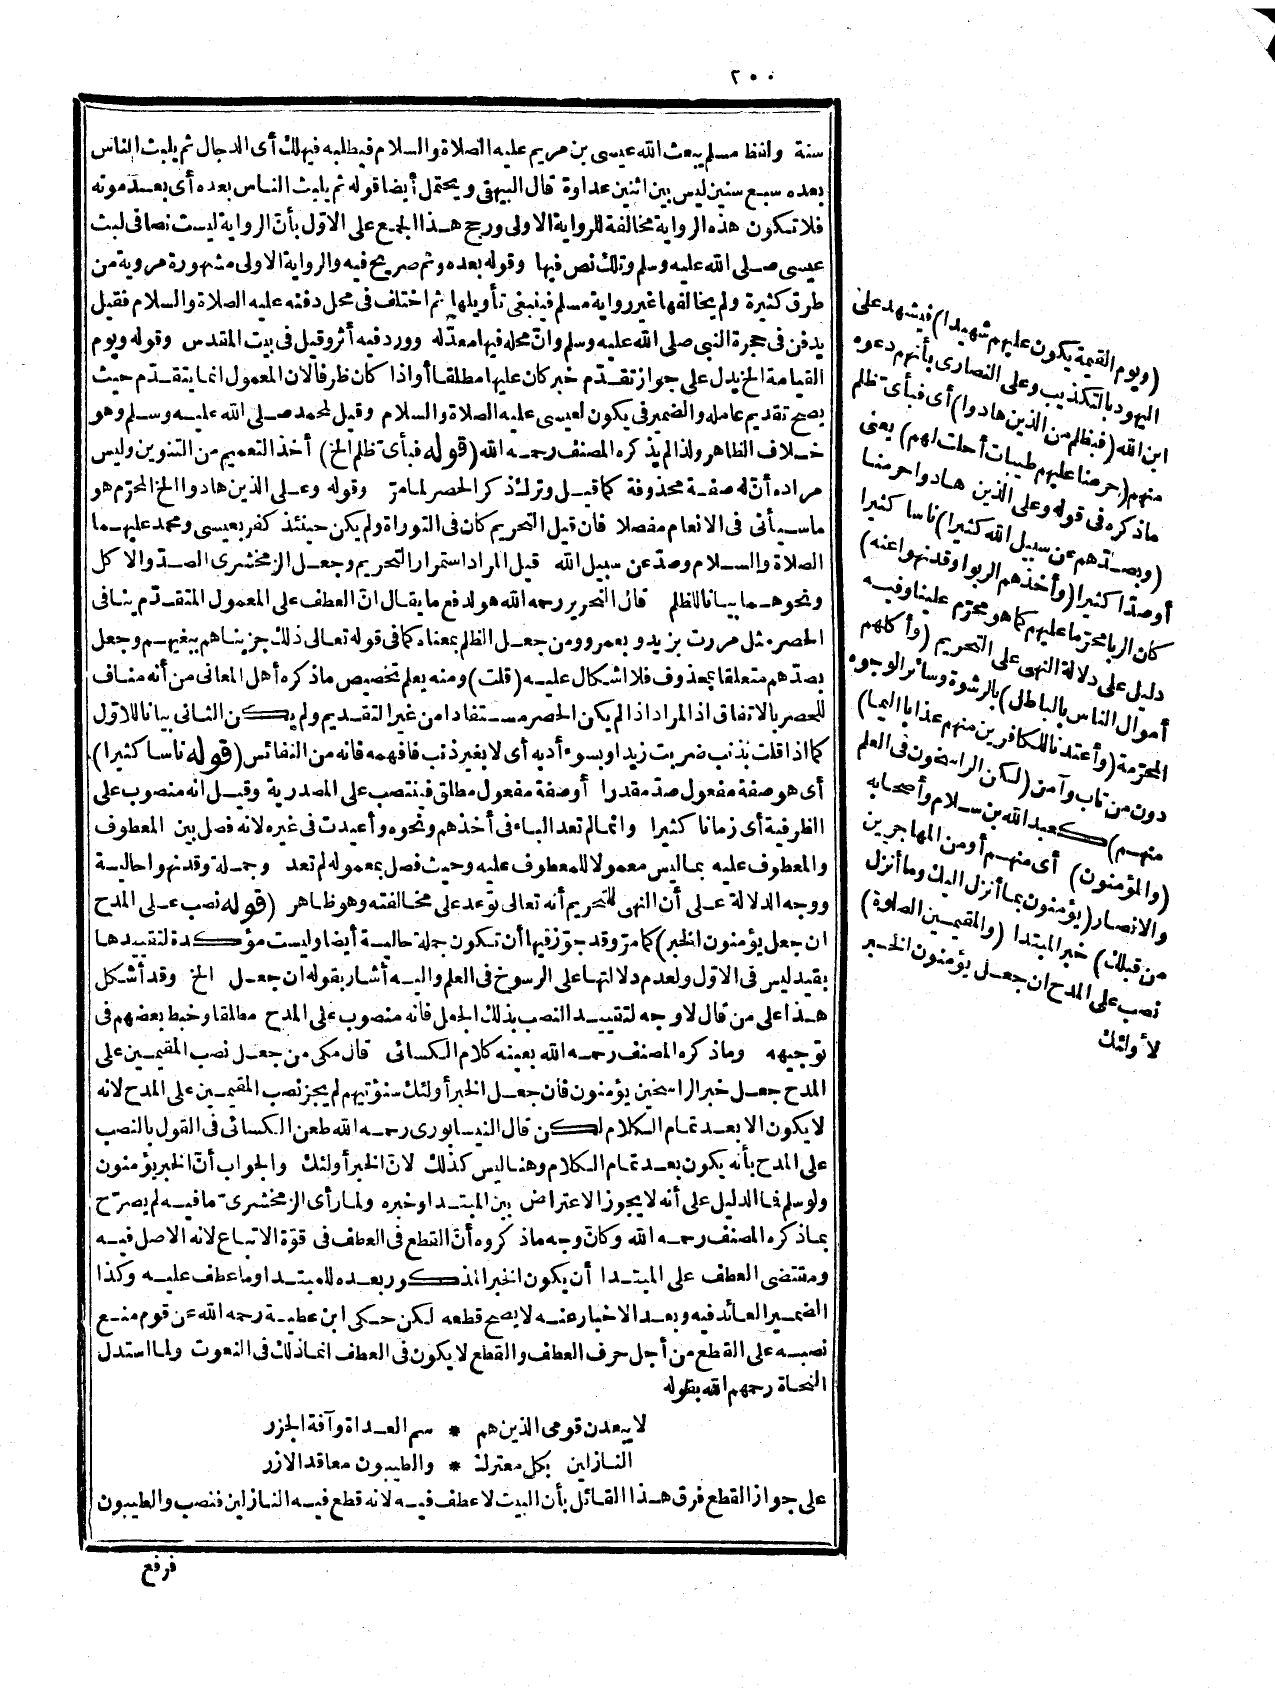 ٢٠٠
سنة ولفظ مسلم يبعث الله عيسى بن مريم عليه الصلاة والسلام فيطلبه فيهلك أى الدجال ثم يلبث الناس
بعده سبع سنين ليس بين اثنين عداوة قال البيهقى ويحتمل أيضا قوله ثم يلبث الناس بعده أى بعد موته
فلا تكون هذه الرواية مخالفة للرواية الاولى ورجح هذا الجمع على الاول بأن الرواية ليست نصا فى لبث
عيسى صلى الله عليه وسلم وتلك نص فيها وقوله بعده وثم صريح فيه والرواية الاولى مشهورة مروية من
طرق كثيرة ولم يخالفها غير رواية مسلم فينبغى تأويلها ثم اختلف فى محل دفنه عليه الصلاة والسلام فقيل
يدفن فى حجرة النبى صلى الله عليه وسلم وانّ محله فيها معدّ له وورد فيه أثر وقيل فى بيت المقدس وقوله ويوم
القيامة الخ يدل على جواز تقدّم خبر كان عليها مطلقا أو اذا كان ظرفا لان المعمول انما يتقدّم حيث
يصح تقديم عامله والضمير فى يكون لعيسى عليه الصلاة والسلام وقيل لمحمد صلى الله عليه وسلم وهو
خلاف الظاهر ولذا لم يذكره المصنف رحمه الله (قوله فبأى ظلم الخ) أخذ التعميم من التنوين وليس
مراده أنّ له صفة محذوفة كما قيل وترك ذكر الحصر لما مرّ وقوله وعلى الذين هادوا الخ المحرّم هو
ما سيأتى فى الانعام مفصلا فان قيل التحريم كان فى التوراة ولم يكن حينئذ كفر بعيسى ومحمد عليهما
الصلاة والسلام وصدّ عن سبيل الله قيل المراد استمرار التحريم وجعل الزمخشرى الصدّ والاكل
ونحوهما بيانا للظلم قال النحرير رحمه الله هو لدفع ما يقال انّ العطف على المعمول المتقدّم ينافى
الحصر مثل مررت بزيد وبعمرو ومن جعل الظلم بمعناه كما فى قوله تعالى ذلك جزيناهم ببغيهم وجعل
بصدّهم متعلقا بمحذوف فلا اشكال عليه (قلت) ومنه يعلم تخصيص ما ذكره أهل المعانى من أنه مناف
للحصر بالاتفاق اذ المراد اذا لم يكن الحصر مستفادا من غير التقديم ولم يكن الثانى بيانا للاوّل
كما اذا قلت بذنب ضربت زيدا وبسوء أدبه أى لا بغير ذنب فافهمه فانه من النفائس (قوله ناسا كثيرا)
أى هو صفة مفعول صدّ مقدرا أو صفة مفعول مطلق فينتصب على المصدرية وقيل انه منصوب على
الظرفية أى زمانا كثيرا وانما لم تعد الباء فى أخذهم ونحوه وأعيدت فى غيره لانه فصل بين المعطوف
والمعطوف عليه بما ليس معمولا للمعطوف عليه وحيث فصل بمعموله لم تعد وجملة وقد نهوا حالية
ووجه الدلالة على أن النهى للتحريم أنه تعالى توعد على مخالفته وهو ظاهر (قوله نصب على المدح
ان جعل يؤمنون الخبر) كما مرّ وقد جوّز فيها أن تكون جملة حالية أيضا وليست مؤكدة لتقييدها
بقيد ليس فى الاوّل ولعدم دلالتها على الرسوخ فى العلم واليه أشار بقوله ان جعل الخ وقد أشكل
هذا على من قال لا وجه لتقييد النصب بذلك الجعل فانه منصوب على المدح مطلقا وخبط بعضهم فى
توجيهه وما ذكره المصنف رحمه الله بعينه كلام الكسائى قال مكى من جعل نصب المقيمين على
المدح جعل خبر الراسخين يؤمنون فان جعل الخبر أولئك سنؤتيهم لم يجز نصب المقيمين على المدح لانه
لا يكون الا بعد تمام الكلام لكن قال النيسابورى رحمه الله طعن الكسائى فى القول بالنصب
على المدح بأنه يكون بعد تمام الكلام وهنا ليس كذلك لانّ الخبر أولئك والجواب أنّ الخبر يؤمنون
ولو سلم فما الدليل على أنه لا يجوز الاعتراض بين المبتدا وخبره ولما رأى الزمخشرىّ ما فيه لم يصرّح
بما ذكره المصنف رحمه الله وكانّ وجه ما ذكروه أنّ القطع فى العطف فى قوّة الاتباع لانه الاصل فيه
ومقتضى العطف على المبتدا أن يكون الخبر المذكور بعده للمبتدا وما عطف عليه وكذا
الضمير العائد فيه وبعد الاخبار عنه لا يصح قطعه لكن حكى ابن عطية رحمه الله عن قوم منع
نصبه على القطع من أجل حرف العطف والقطع لا يكون فى العطف انما ذلك فى النعوت ولما استدل
النحاة رحمهم الله بقوله
لا يبعدن قومى الذين هم * سم العداة وآفة الجزر
النازلين بكل معترك * والطيبون معاقد الازر
على جواز القطع فرق هذا القائل بأن البيت لا عطف فيه لانه قطع فيه النازلين فنصب والطيبون
فرفع
(ويوم القيمة يكون عليهم شهيدا) فيشهد على
اليهود بالتكذيب وعلى النصارى بأنهم دعوه
ابن الله (فبظلم من الذين هادوا) أى فبأىّ ظلم
منهم (حرمنا عليهم طيبات أحلت لهم) يعنى
ما ذكره فى قوله وعلى الذين هادوا حرمنا
(وبصدّهم عن سبيل الله كثيرا) ناسا كثيرا
أو صدّا كثيرا (وأخذهم الربوا وقد نهوا عنه)
كان الربا محرّما عليهم كما هو محرّم علينا وفيه
دليل على دلالة النهى على التحريم (وأكلهم
أموال الناس بالباطل) بالرشوة وسائر الوجوه
المحرّمة (وأعتدنا للكافرين منهم عذابا أليما)
دون من تاب وآمن (لكن الراسخون فى العلم
منهم) كعبد الله بن سلام وأصحابه
(والمؤمنون) أى منهم أو من المهاجرين
والانصار (يؤمنون بما أنزل اليك وما أنزل
من قبلك) خبر المبتدا (والمقيمين الصلوة)
نصب على المدح ان جعل يؤمنون الخبر
لأولئك